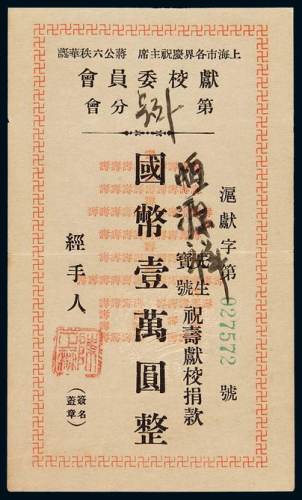 上海市各界慶祝主席　蔣公六秩華誕
獻校委員會
第　分會
滬獻字第 027572 號
恒源祥
先生
寶號
祝壽獻校捐款
國幣壹萬圓整
經手人
（簽名蓋章）